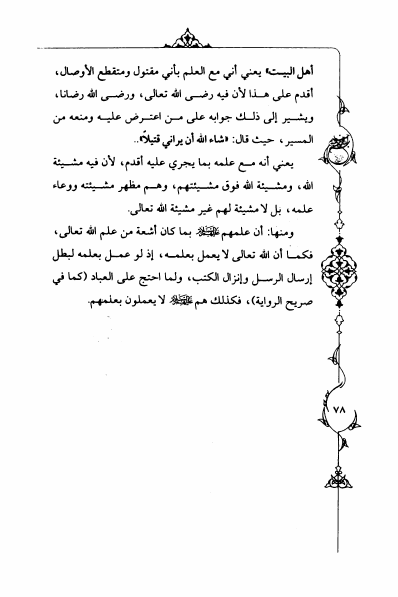 أهل البيت» يعني أني مع العلم بأني مقتول ومتقطع الأوصال،
أقدم على هذا لأن فيه رضى الله تعالى، ورضى الله رضانا،
ويشير إلى ذلك جوابه على من اعترض عليه ومنعه من
المسير، حيث قال: «شاء الله أن يراني قتيلاً»..
يعني أنه مع علمه بما يجري عليه أقدم، لأن فيه مشيئة
الله، ومشيئة الله فوق مشيئتهم، وهم مظهر مشيئته ووعاء
علمه، بل لا مشيئة لهم غير مشيئة الله تعالى.
ومنها: أن علمهم بما كان أشعة من علم الله تعالى،
فكما أن الله تعالى لا يعمل بعلمه، إذ لو عمل بعلمه لبطل
إرسال الرسل وإنزال الكتب، ولما احتج على العباد (كما في
صريح الرواية)، فكذلك هم لا يعملون بعلمهم.
٧٨